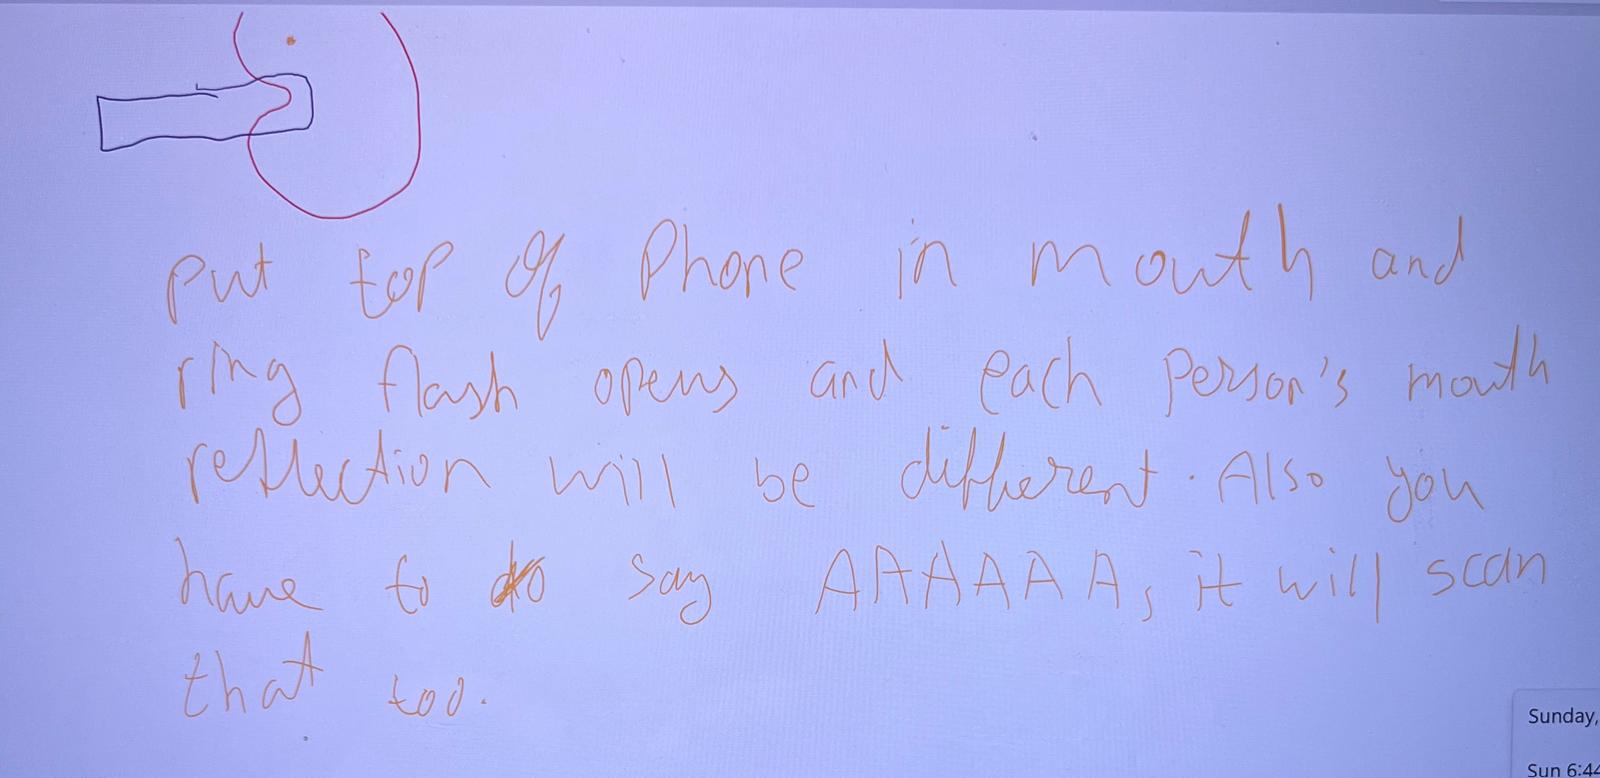 put top of Phone in mouth and
ring flash opens and each person's mouth
reflection will be different. Also you
have to say AAAAAA, it will scan
that too.
Sunday,
Sun 6:44